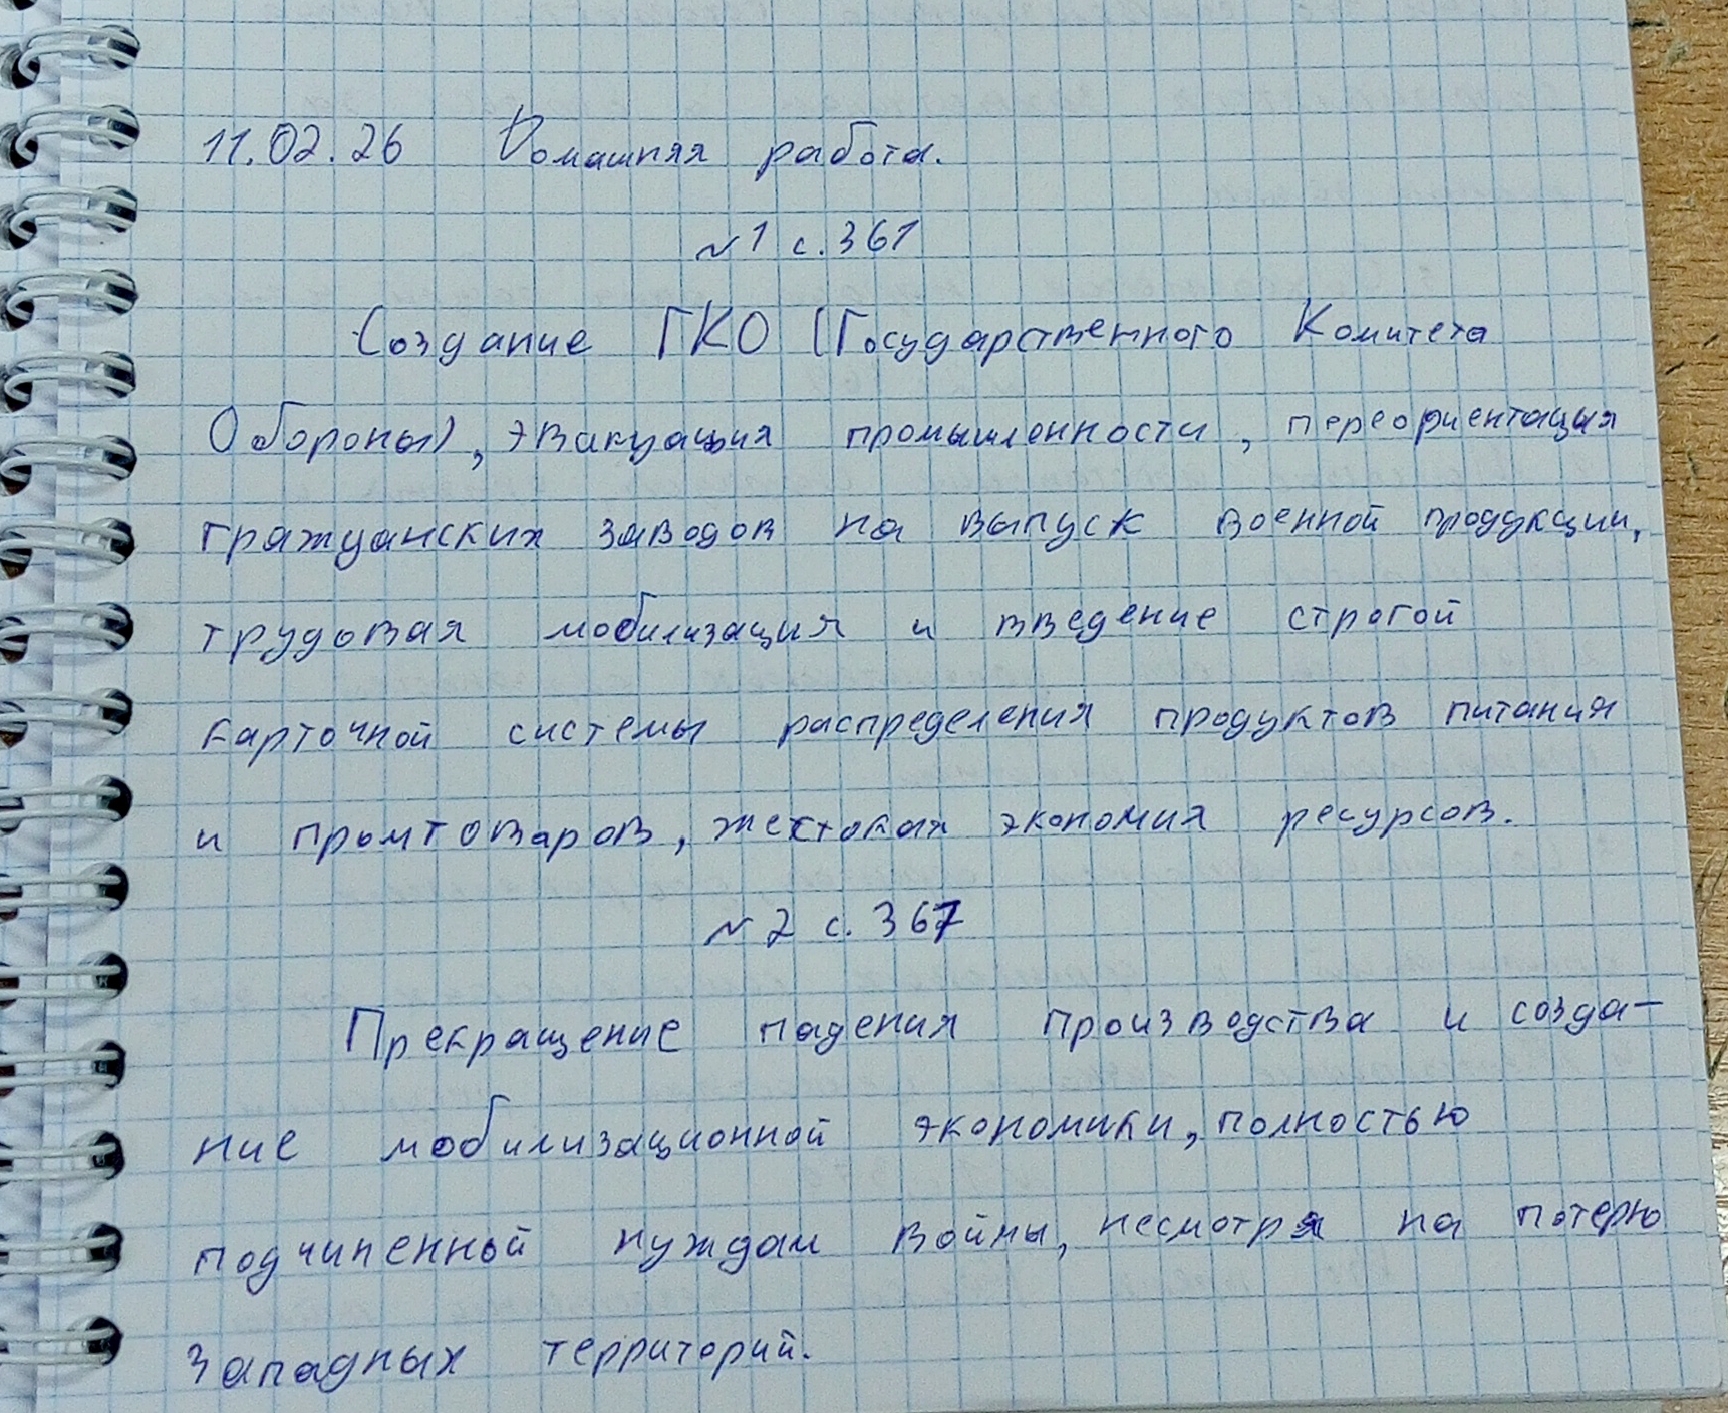 11.02.26 Домашняя работа.
№1 с.361
Создание ГКО (Государственного Комитета
Обороны), эвакуация промышленности, переориентация
гражданских заводов на выпуск военной продукции,
трудовая мобилизация и введение строгой
карточной системы распределения продуктов питания
и промтоваров, жестокая экономия ресурсов.
№2 с. 367
Прекращение падения производства и созда-
ние мобилизационной экономики, полностью
подчиненной нуждам войны, несмотря на потерю
западных территорий.